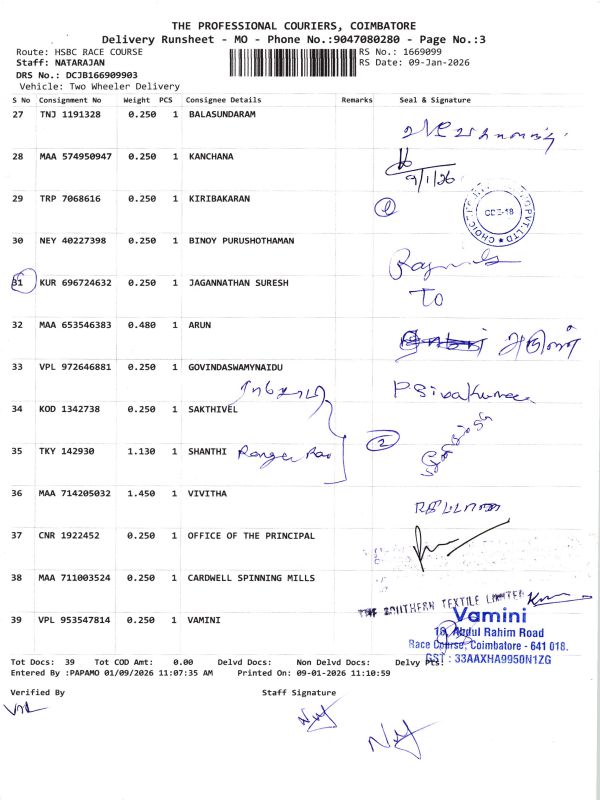 THE PROFESSIONAL COURIERS, COIMBATORE
Delivery Runsheet - MO - Phone No.:9047080280 - Page No.:3
Route: HSBC RACE COURSE RS No.: 1669099
Staff: NATARAJAN RS Date: 09-Jan-2026
DRS No.: DCJB166909903
Vehicle: Two Wheeler Delivery
S No Consignment No Weight PCS Consignee Details Remarks Seal & Signature
27 TNJ 1191328 0.250 1 BALASUNDARAM
28 MAA 574950947 0.250 1 KANCHANA
9/1/26
29 TRP 7068616 0.250 1 KIRIBAKARAN 1
CBE-18
30 NEY 40227398 0.250 1 BINOY PURUSHOTHAMAN
31 KUR 696724632 0.250 1 JAGANNATHAN SURESH
TO
32 MAA 653546383 0.480 1 ARUN அருண்
33 VPL 972646881 0.250 1 GOVINDASWAMYNAIDU
P Sivakumar
34 KOD 1342738 0.250 1 SAKTHIVEL
2
35 TKY 142930 1.130 1 SHANTHI Ranga Rao
36 MAA 714205032 1.450 1 VIVITHA
37 CNR 1922452 0.250 1 OFFICE OF THE PRINCIPAL
38 MAA 711003524 0.250 1 CARDWELL SPINNING MILLS
THE SOUTHERN TEXTILE LIMITED
39 VPL 953547814 0.250 1 VAMINI
Vamini
18, Abdul Rahim Road
Race Course, Coimbatore - 641 018.
GST : 33AAXHA9950N1ZG
Tot Docs: 39 Tot COD Amt: 0.00 Delvd Docs: Non Delvd Docs: Delvy Pts:
Entered By :PAPAMO 01/09/2026 11:07:35 AM Printed On: 09-01-2026 11:10:59
Verified By Staff Signature